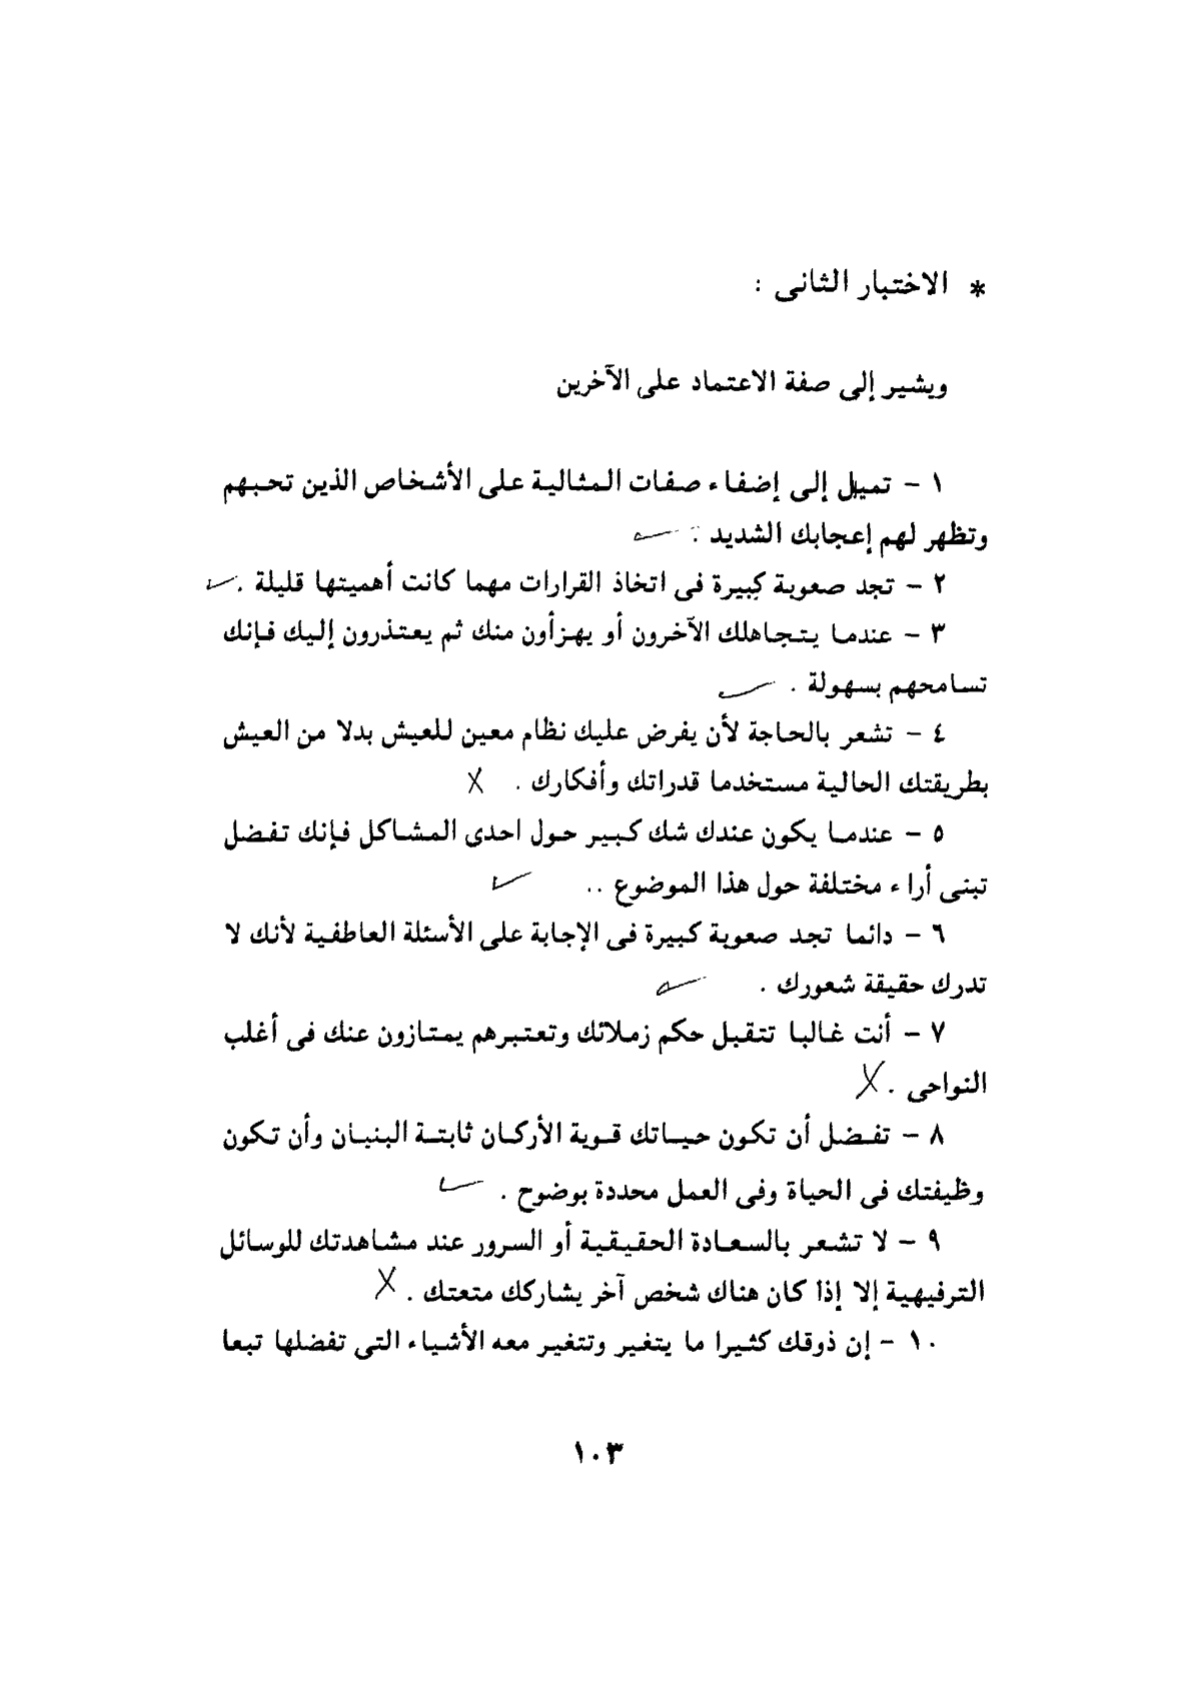 * الاختبار الثانى :
ويشير إلى صفة الاعتماد على الآخرين
١ - تميل إلى إضفاء صفات المثالية على الأشخاص الذين تحبهم
وتظهر لهم إعجابك الشديد . ✓
٢ - تجد صعوبة كبيرة فى اتخاذ القرارات مهما كانت أهميتها قليلة . ✓
٣ - عندما يتجاهلك الآخرون أو يهزأون منك ثم يعتذرون إليك فإنك
تسامحهم بسهولة . ✓
٤ - تشعر بالحاجة لأن يفرض عليك نظام معين للعيش بدلا من العيش
بطريقتك الحالية مستخدما قدراتك وأفكارك . X
٥ - عندما يكون عندك شك كبير حول احدى المشاكل فإنك تفضل
تبنى أراء مختلفة حول هذا الموضوع .. ✓
٦ - دائما تجد صعوبة كبيرة فى الإجابة على الأسئلة العاطفية لأنك لا
تدرك حقيقة شعورك . ✓
٧ - أنت غالبا تتقبل حكم زملائك وتعتبرهم يمتازون عنك فى أغلب
النواحى . X
٨ - تفضل أن تكون حياتك قوية الأركان ثابتة البنيان وأن تكون
وظيفتك فى الحياة وفى العمل محددة بوضوح . ✓
٩ - لا تشعر بالسعادة الحقيقية أو السرور عند مشاهدتك للوسائل
الترفيهية إلا إذا كان هناك شخص آخر يشاركك متعتك . X
١٠ - إن ذوقك كثيرا ما يتغير وتتغير معه الأشياء التى تفضلها تبعا
١٠٣